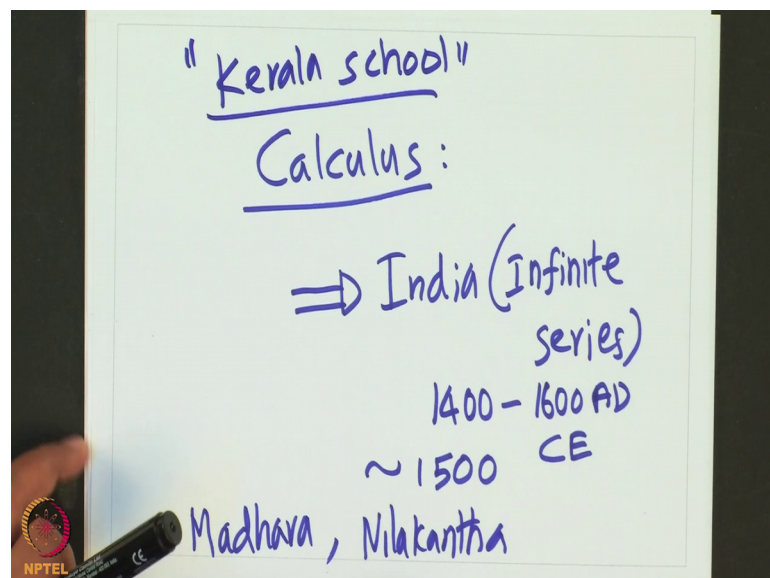 "Kerala school"
Calculus:
⇒ India (Infinite
series)
1400 - 1600 AD
CE
~1500
Madhava, Nilakantha
CE
NPTEL